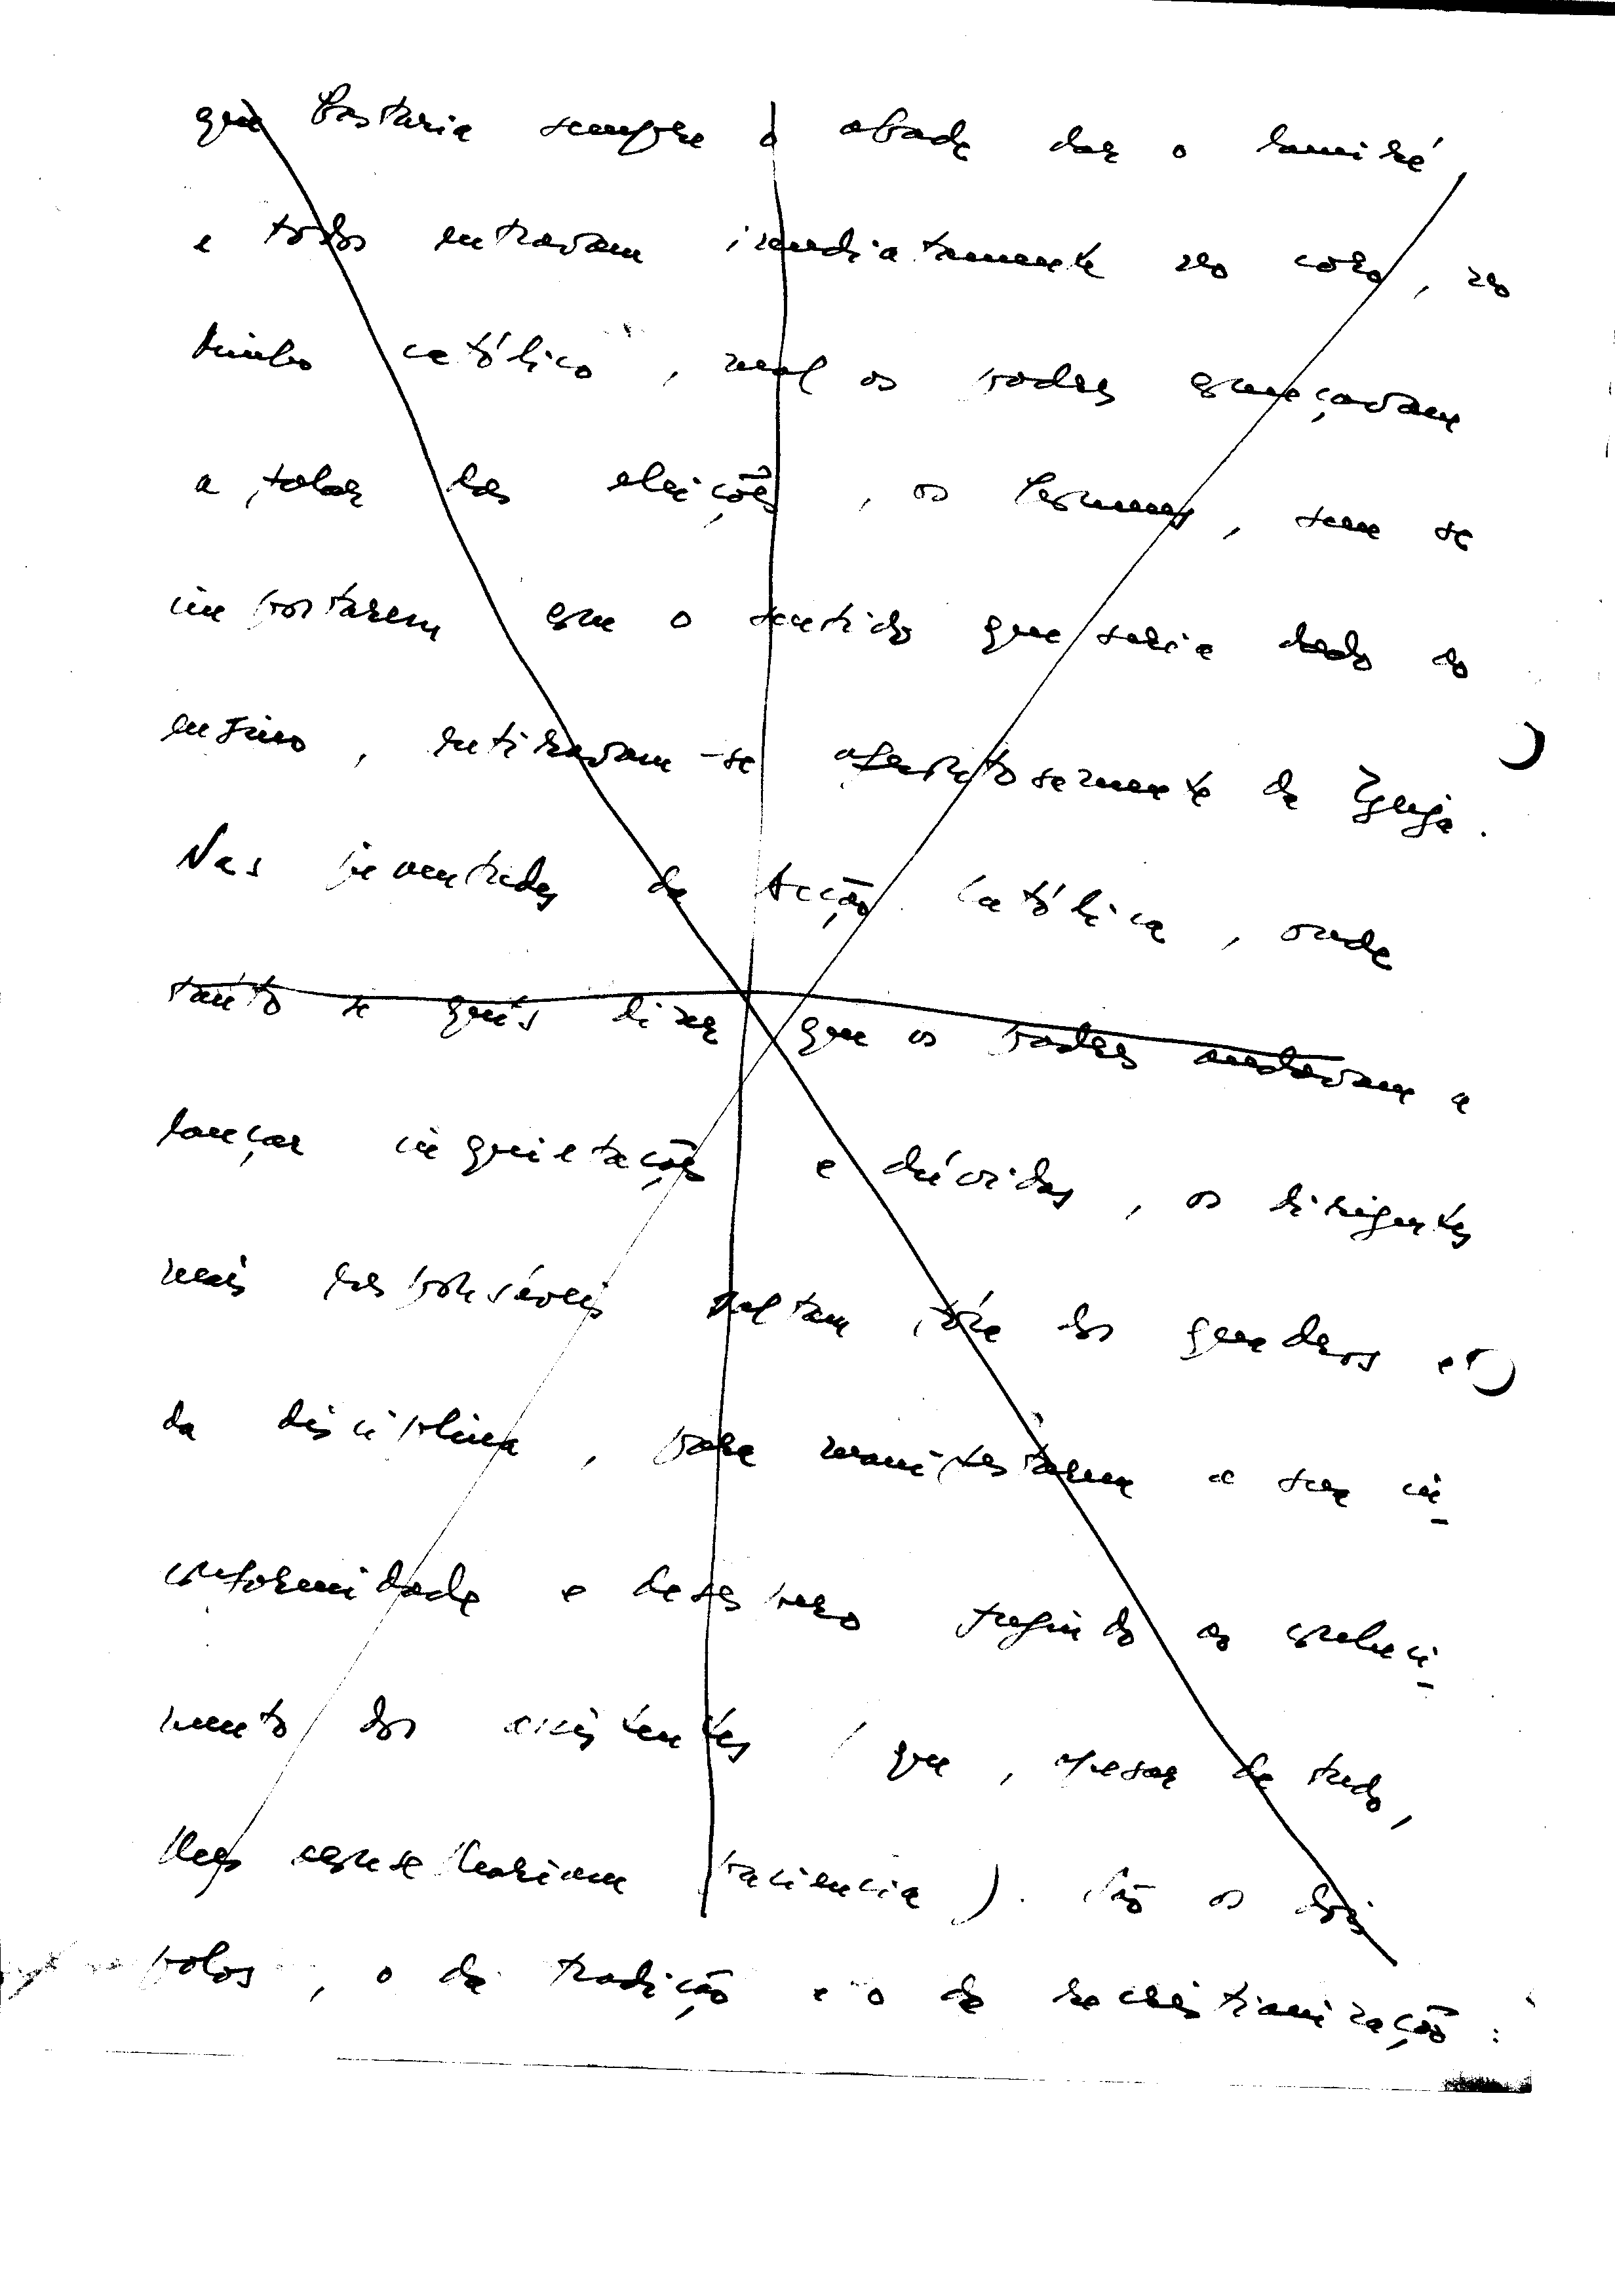 que bastaria sempre o abade dar o lamiré
e todos entravam imediatamente no coro, no
timbo católico, mal os padres começavam
a falar das eleições, os homens, sem se
importarem com o sentido que seria dado ao
ensino, retiravam-se apressadamente da Igreja.
Nas juventudes da Acção Católica, onde
tanto se quis dizer que os padres andavam a
lançar inquietações e dúvidas, os dirigentes
mais responsáveis saltam fóra dos quadros e
da disciplina, para manifestarem a sua in-
conformidade e desespero fugindo ao conheci-
mento dos assistentes (que, apesar de tudo,
lhes aconselhariam paciencia). São os dois
polos, o da tradição e o da rechristianização: